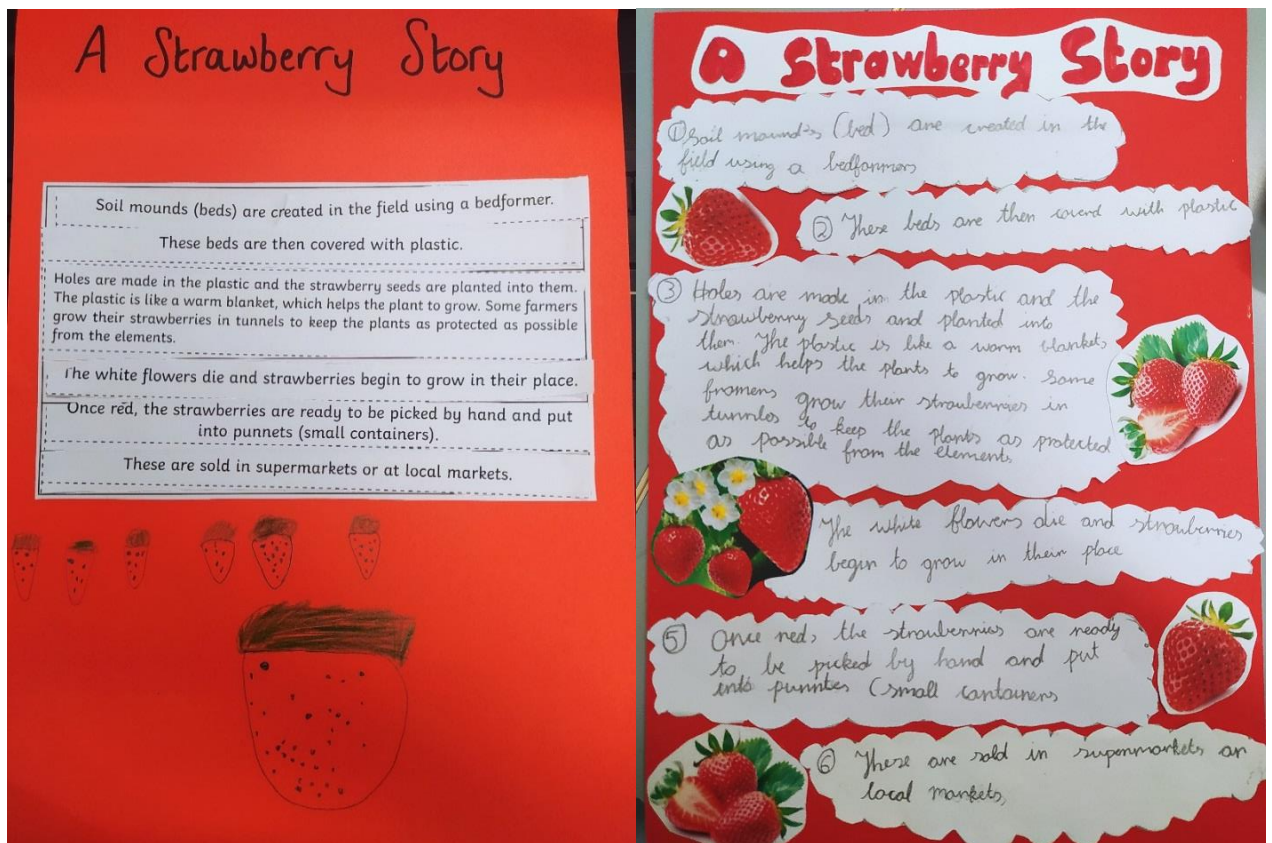 A Strawberry Story
Soil mounds (beds) are created in the field using a bedformer.
These beds are then covered with plastic.
Holes are made in the plastic and the strawberry seeds are planted into them.
The plastic is like a warm blanket, which helps the plant to grow. Some farmers
grow their strawberries in tunnels to keep the plants as protected as possible
from the elements.
The white flowers die and strawberries begin to grow in their place.
Once red, the strawberries are ready to be picked by hand and put
into punnets (small containers).
These are sold in supermarkets or at local markets.
A Strawberry Story
① Soil mounds (bed) are created in the
field using a bedformers
② These beds are then coverd with plastic
③ Holes are made in the plastic and the
strawberry seeds and planted into
them. The plastic is like a warm blankets
which helps the plants to grow. Some
fromers grow their strauberries in
tunnles to keep the plants as protected
as possible from the elements
The white flowers die and strawberries
begin to grow in their place
⑤ Once red, the strauberries are ready
to be picked by hand and put
into punntes (small containers
⑥ These are sold in supermarkets or
local markets